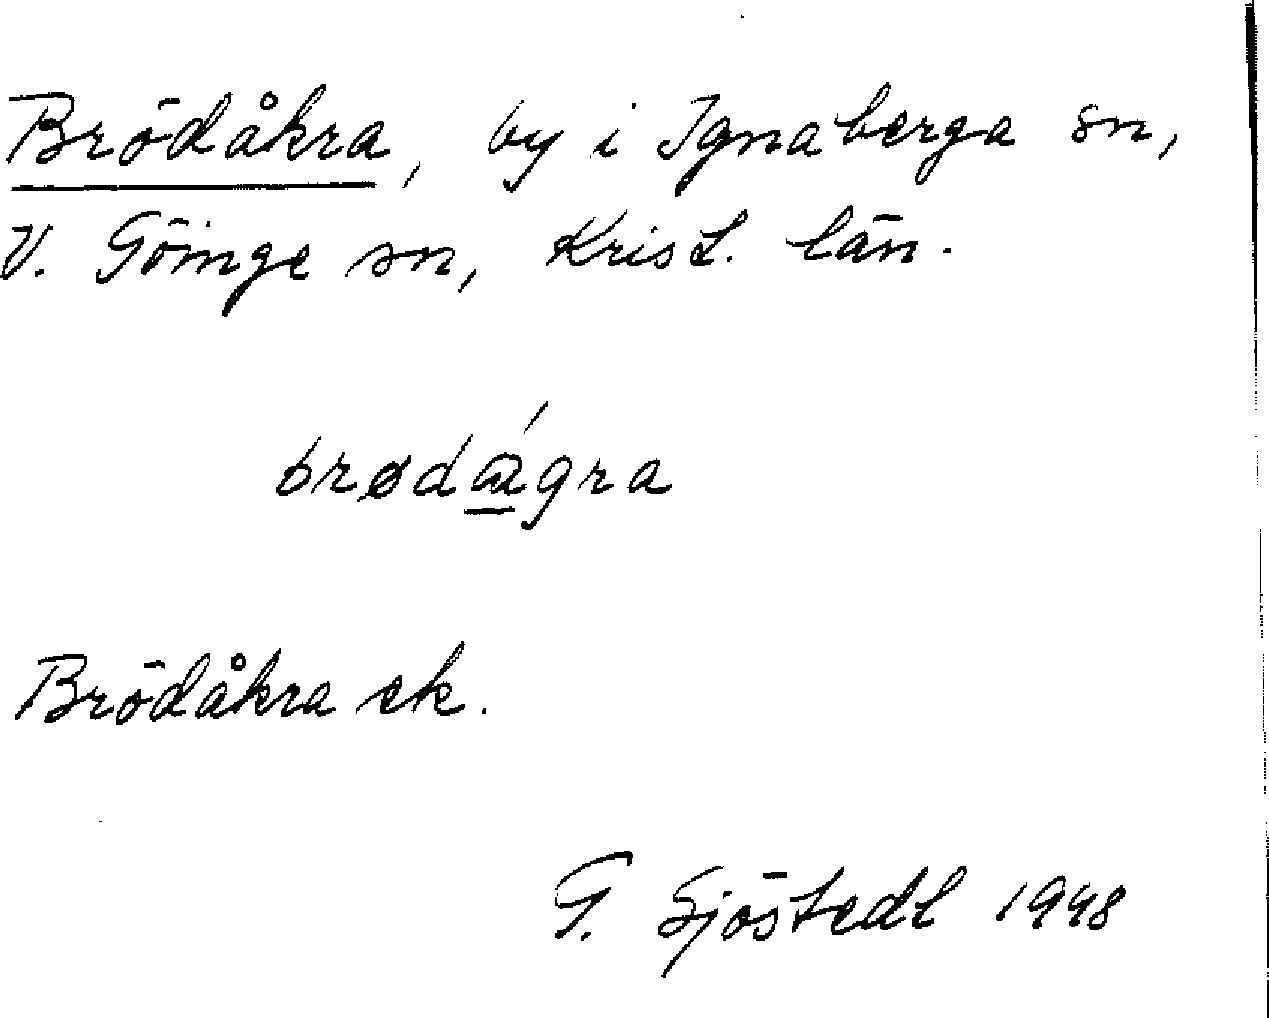 Brödåkra, by i Ignaberga sn,
V. Göinge sn, Krist. län.
brødågra
Brödåkra ek.
G. Sjöstedt 1948